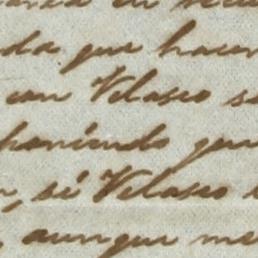 da que hacer
con Velasco se
poniendo que
si Velasco
aunque me